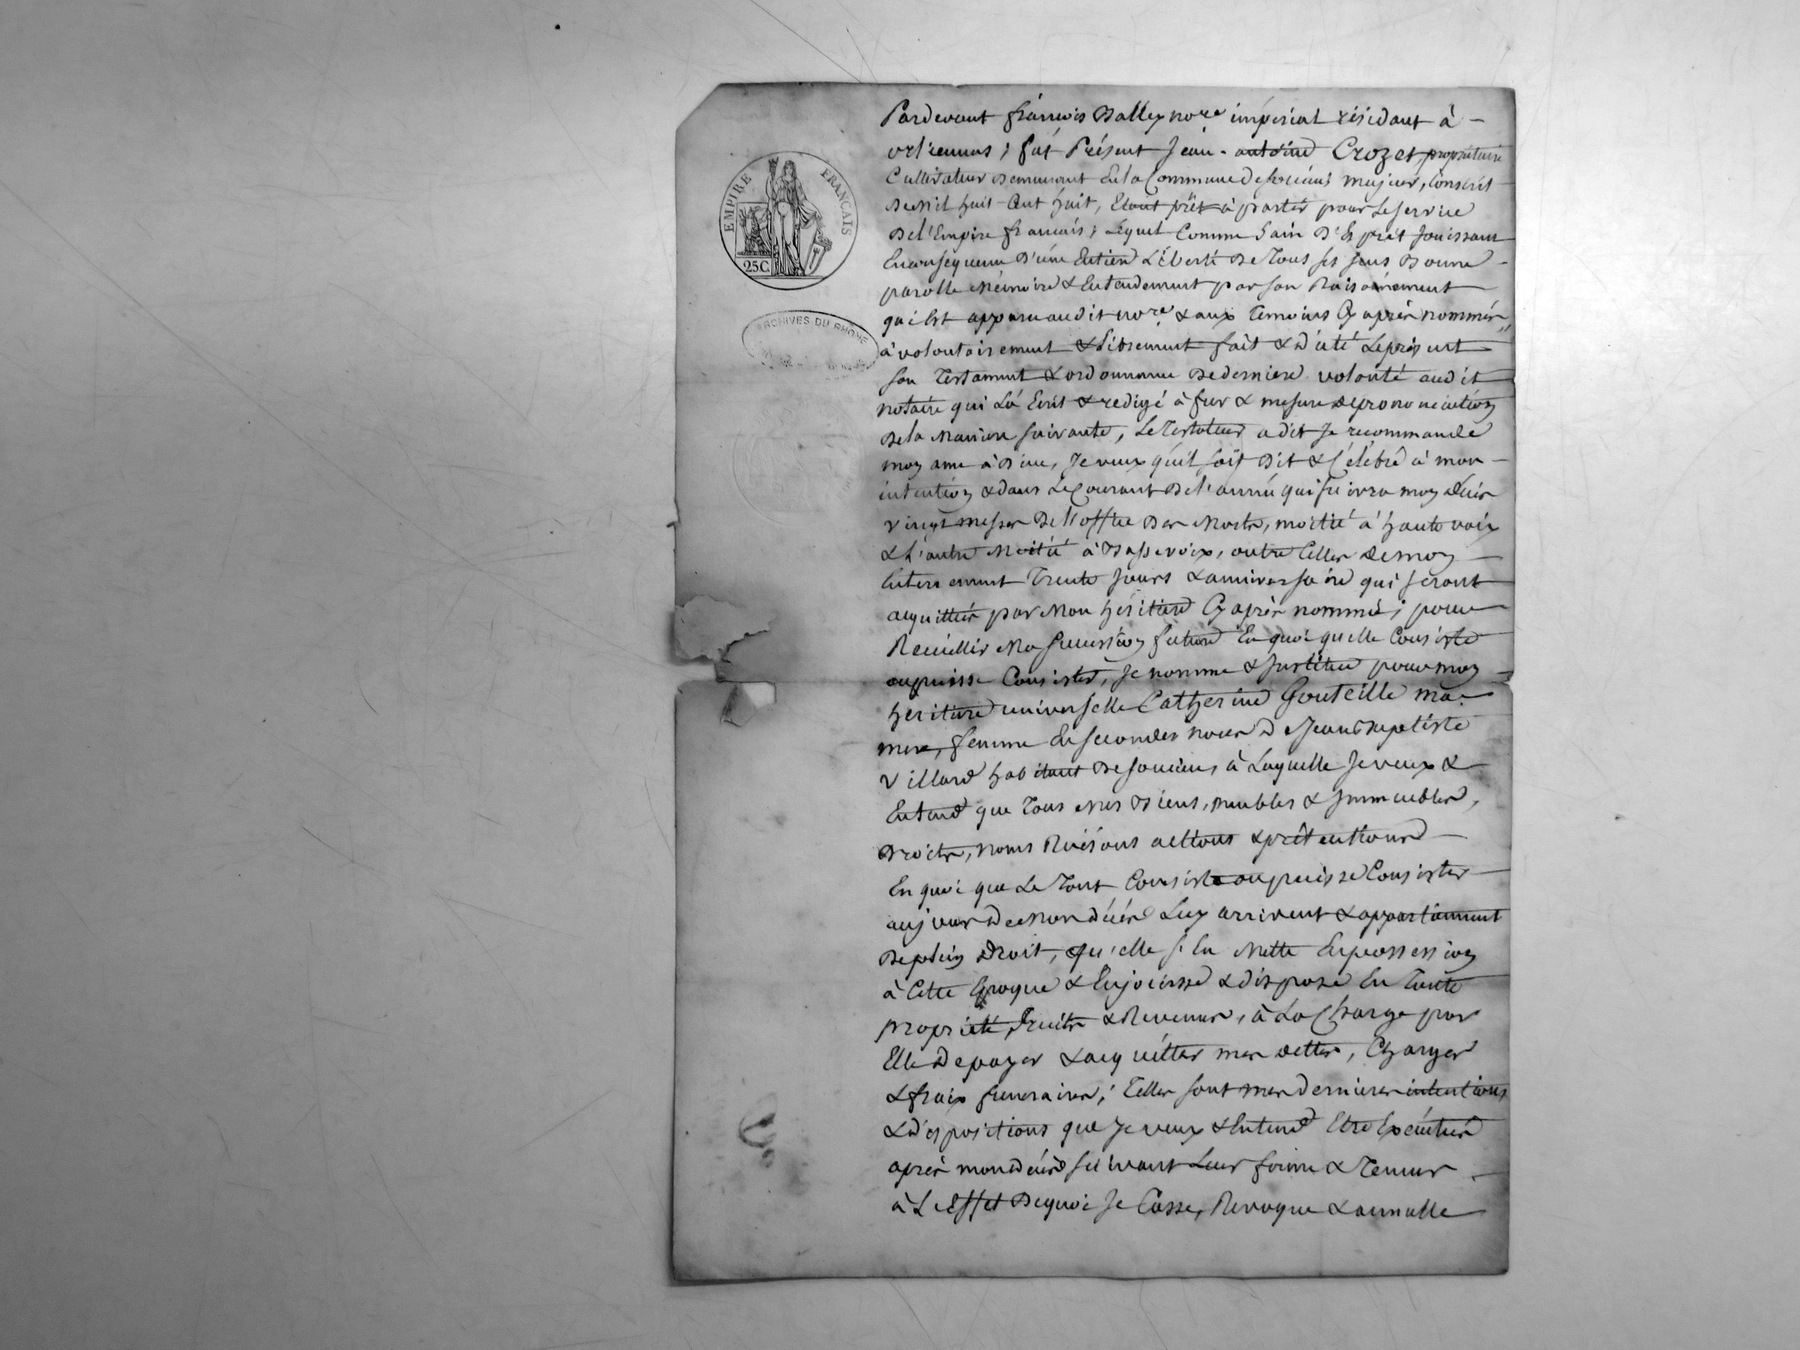 EMPIRE FRANÇAIS
25C
ARCHIVES DU RHÔNE
Pardevant françois Dalley no.re impérial résidant à
fut Présent Jean - antoine Crozet, propriétaire
Cultivateur Demeurant En la Commune de soucieu majeur, Conscrit
De mil huit Cent huit, Etant prêt à partir pour Le service
De l'Empire francais; Lequel Comme Sain D'Esprit Jouissant
En consequence D'une Entiere Liberté De Tous ses sens Bonne
parolle Mémoire & Entendement par son Raisonnement
qui Est apparu audit no.re & aux Temoins Cy après nommés,
à volontairement & Librement fait & dicté Le présent
son Testament & ordonnance De derniere volonté audit
notaire qui L'à Ecrit & redigé à fur & mesure de prononciation
De la Maniere suivante, Le Testateur a dit Je recommande
mon ame à Dieu, Je veux qu'il soit Dit & Célébré à mon
intention & dans Le Courant De l'année qui suivra mon décès
vingt messes De l'office Des Morts, moitié à haute voix
& L'autre Moitié à Basse voix, outre Celles de mon
Enterrement Trente Jours & anniversaire qui seront
acquittés par Mon héritiere Cy après nommée; pour
Recueillir Ma succession future En quoi quelle Consiste
ou puisse Consister, Je nomme & Institue pour mon
héritiere universelle Catherine Gouteille ma
mere, femme En secondes noces de Jean Baptiste
Villard habitant De soucieu, à Laquelle Je veux &
Entend que Tous Mes Biens, meubles & Immeubles,
Droits, noms Raisons actions & prétentions
En quoi que Le Tout Consiste ou puisse Consister
au jour de Mon décès Luy arrivent & appartiennent
De plein Droit, qu'elle s'En Mette En possession
à Cette Epoque & En jouisse & dispose En Toute
propriété, fruits & Revenus, à La Charge par
Elle de payer & acquitter mes dettes, Charges
& frais funeraires; Telles sont mes dernieres intentions
& dispositions que Je veux & Entend Etre Exécutées
après mon décès suivant Leur forme & Teneur
à L'Effet De quoi Je Casse, Revoque & annulle